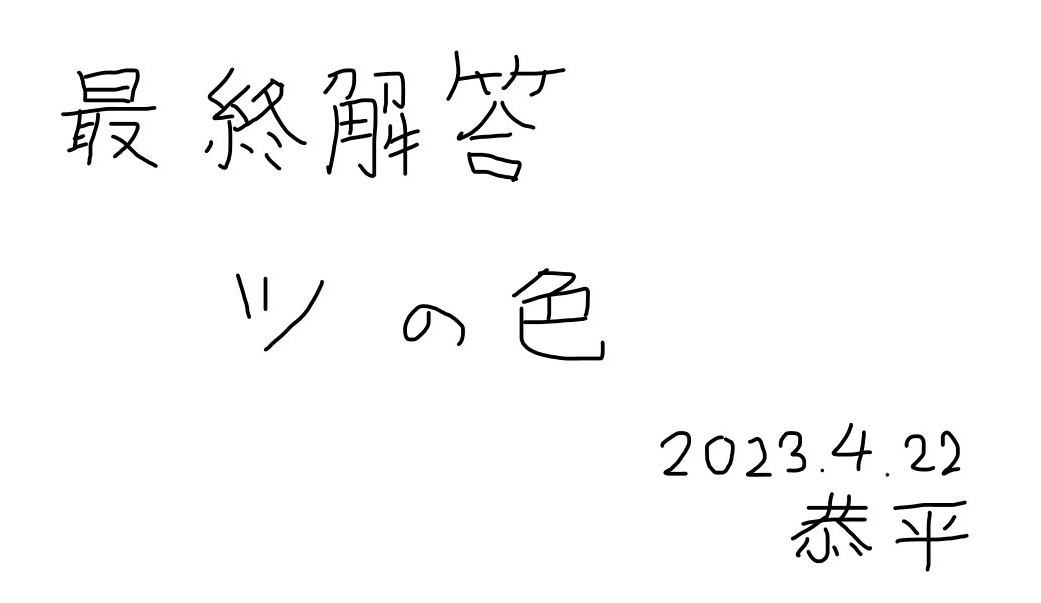 最終解答
ツの色
2023.4.22
恭平